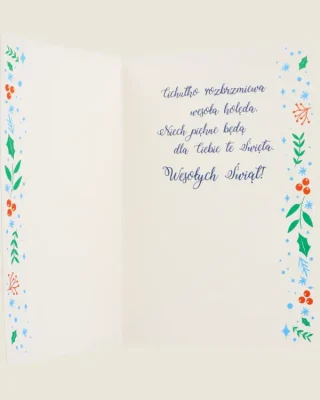 Cichutko rozbrzmiewa
wesoła kolęda.
Niech piękne będą
dla Ciebie te Święta.
Wesołych Świąt!